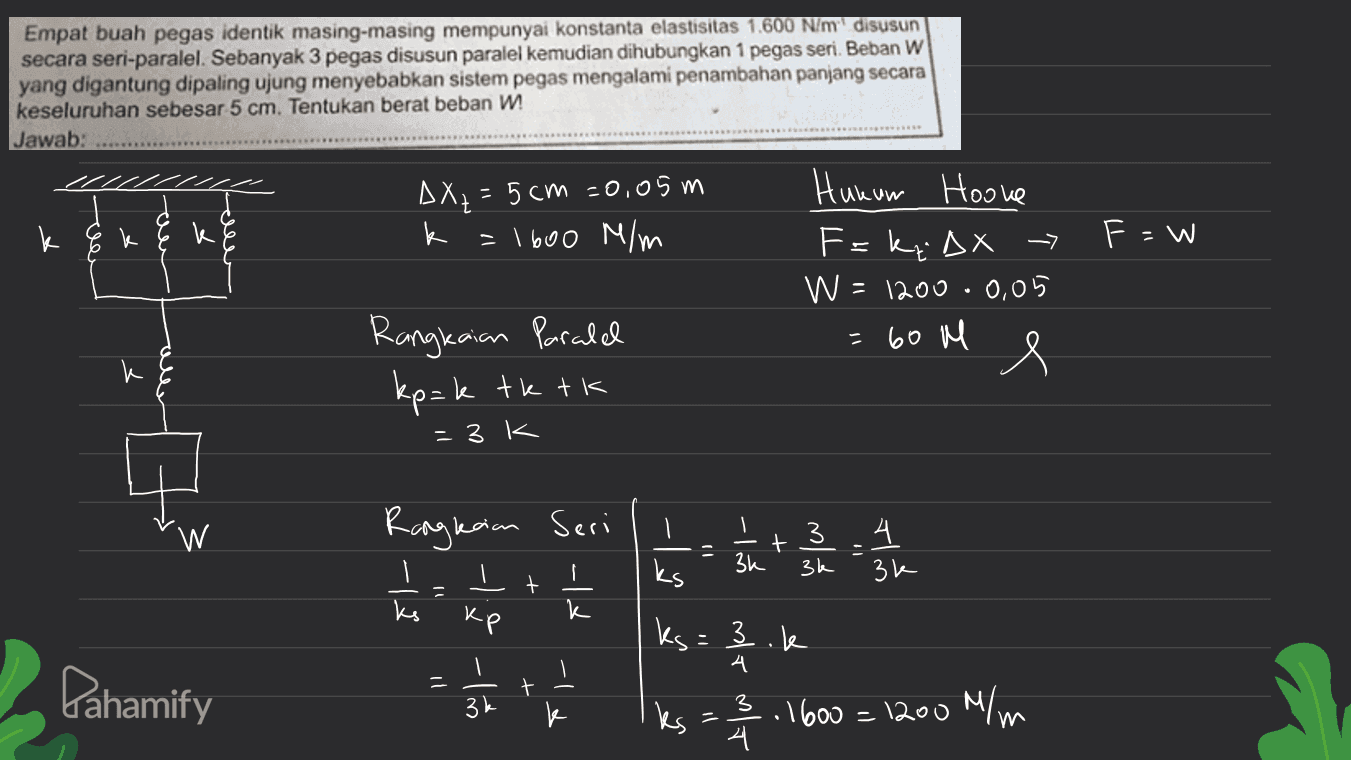 Empat buah pegas identik masing-masing mempunyai konstanta elastisitas 1.600 N/m⁻¹ disusun
secara seri-paralel. Sebanyak 3 pegas disusun paralel kemudian dihubungkan 1 pegas seri. Beban W
yang digantung dipaling ujung menyebabkan sistem pegas mengalami penambahan panjang secara
keseluruhan sebesar 5 cm. Tentukan berat beban W!
Jawab: ........................................
k k k
k
W
ΔXt = 5 cm = 0,05 m
k = 1600 N/m
Rangkaian Paralel
kp = k + k + k
= 3 k
Rangkaian Seri
1/ks = 1/kp + 1/k
= 1/3k + 1/k
1/ks = 1/3k + 3/3k = 4/3k
ks = 3/4 . k
ks = 3/4 . 1600 = 1200 N/m
Hukum Hooke
F = kt . ΔX → F = W
W = 1200 . 0,05
= 60 N
Pahamify